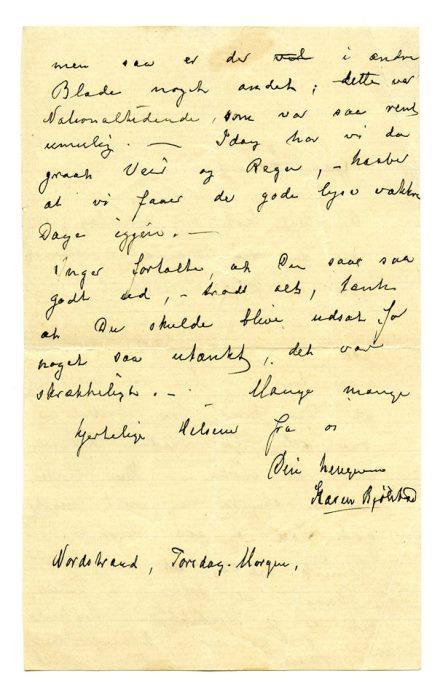 men saa er der ved i andre
Blade noget andet; dette var
Nationaltidende, som var saa rent
umulig. — Idag har vi da
graat Veir og Regn, – haaber
at vi faaer de gode lyse vakkre
Dage igjen. —
Inger fortalte, at Du saae saa
godt ud, – trods alt, tænk
at Du skulde blive udsat for
noget saa utænkt, det var
skrækkeligt. – Mange mange
hjertelige Hilsener fra os
Din hengivne
Karen Bjølstad
Nordstrand, Torsdag-Morgen,